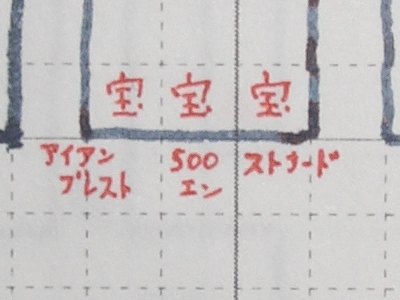 宝 宝 宝
アイアン 500 ストナード
ブレスト エン